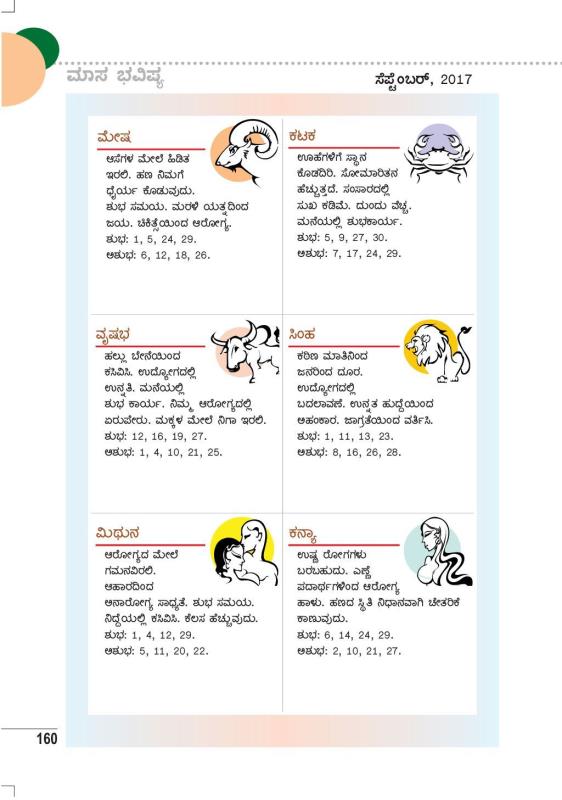 ಮಾಸ ಭವಿಷ್ಯ
ಸೆಪ್ಟೆಂಬರ್, 2017
ಮೇಷ
ಆಸೆಗಳ ಮೇಲೆ ಹಿಡಿತ
ಇರಲಿ. ಹಣ ನಿಮಗೆ
ಧೈರ್ಯ ಕೊಡುವುದು.
ಶುಭ ಸಮಯ. ಮರಳಿ ಯತ್ನದಿಂದ
ಜಯ. ಚಿಕಿತ್ಸೆಯಿಂದ ಆರೋಗ್ಯ.
ಶುಭ: 1, 5, 24, 29.
ಅಶುಭ: 6, 12, 18, 26.
ವೃಷಭ
ಹಲ್ಲು ಬೇನೆಯಿಂದ
ಕಸಿವಿಸಿ. ಉದ್ಯೋಗದಲ್ಲಿ
ಉನ್ನತಿ. ಮನೆಯಲ್ಲಿ
ಶುಭ ಕಾರ್ಯ. ನಿಮ್ಮ ಆರೋಗ್ಯದಲ್ಲಿ
ಏರುಪೇರು. ಮಕ್ಕಳ ಮೇಲೆ ನಿಗಾ ಇರಲಿ.
ಶುಭ: 12, 16, 19, 27.
ಅಶುಭ: 1, 4, 10, 21, 25.
ಮಿಥುನ
ಆರೋಗ್ಯದ ಮೇಲೆ
ಗಮನವಿರಲಿ.
ಆಹಾರದಿಂದ
ಅನಾರೋಗ್ಯ ಸಾಧ್ಯತೆ. ಶುಭ ಸಮಯ.
ನಿದ್ದೆಯಲ್ಲಿ ಕಸಿವಿಸಿ. ಕೆಲಸ ಹೆಚ್ಚುವುದು.
ಶುಭ: 1, 4, 12, 29.
ಅಶುಭ: 5, 11, 20, 22.
ಕಟಕ
ಊಹೆಗಳಿಗೆ ಸ್ಥಾನ
ಕೊಡದಿರಿ. ಸೋಮಾರಿತನ
ಹೆಚ್ಚುತ್ತದೆ. ಸಂಸಾರದಲ್ಲಿ
ಸುಖ ಕಡಿಮೆ. ದುಂದು ವೆಚ್ಚ.
ಮನೆಯಲ್ಲಿ ಶುಭಕಾರ್ಯ.
ಶುಭ: 5, 9, 27, 30.
ಅಶುಭ: 7, 17, 24, 29.
ಸಿಂಹ
ಕಠಿಣ ಮಾತಿನಿಂದ
ಜನರಿಂದ ದೂರ.
ಉದ್ಯೋಗದಲ್ಲಿ
ಬದಲಾವಣೆ. ಉನ್ನತ ಹುದ್ದೆಯಿಂದ
ಅಹಂಕಾರ. ಜಾಗ್ರತೆಯಿಂದ ವರ್ತಿಸಿ.
ಶುಭ: 1, 11, 13, 23.
ಅಶುಭ: 8, 16, 26, 28.
ಕನ್ಯಾ
ಉಷ್ಣ ರೋಗಗಳು
ಬರಬಹುದು. ಎಣ್ಣೆ
ಪದಾರ್ಥಗಳಿಂದ ಆರೋಗ್ಯ
ಹಾಳು. ಹಣದ ಸ್ಥಿತಿ ನಿಧಾನವಾಗಿ ಚೇತರಿಕೆ
ಕಾಣುವುದು.
ಶುಭ: 6, 14, 24, 29.
ಅಶುಭ: 2, 10, 21, 27.
160